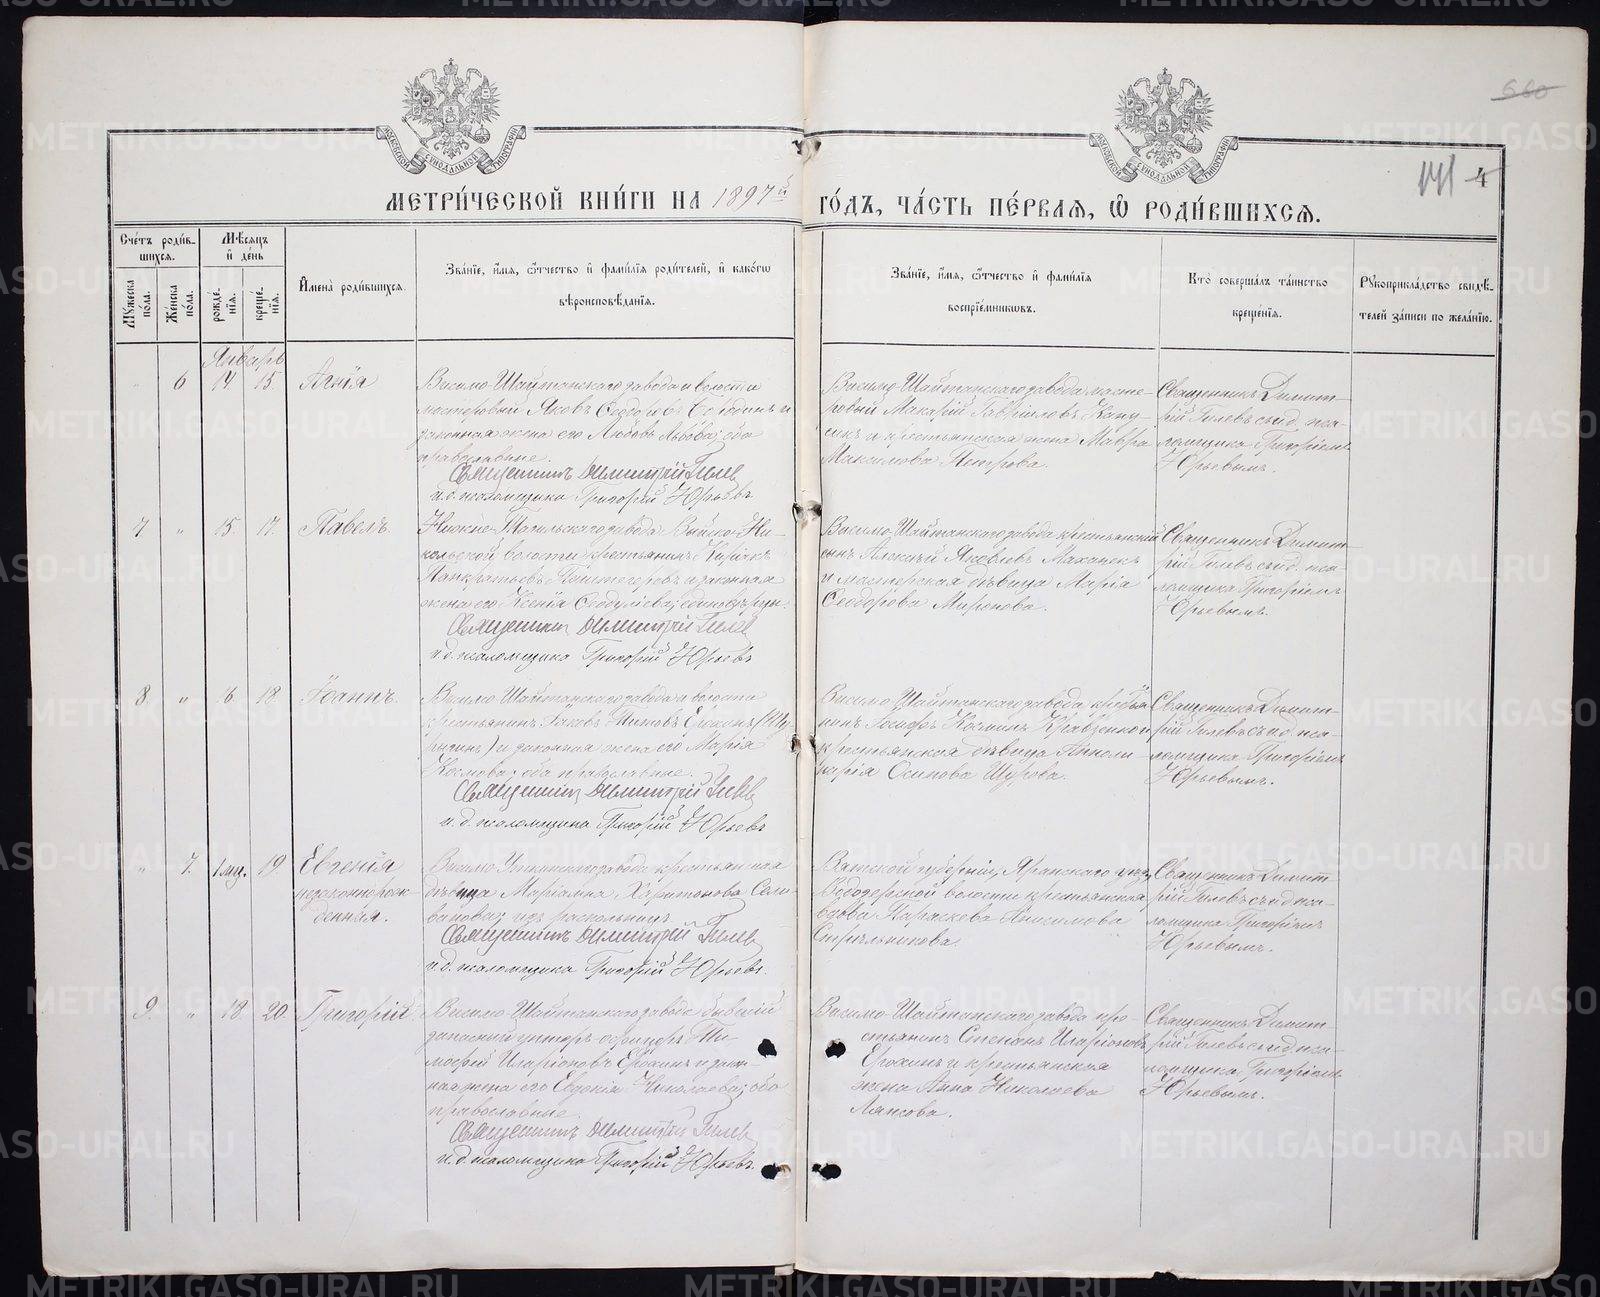 660
141 4
МЕТРИ́ЧЕСКОЙ КНИ́ГИ НА 1897й ГО́ДЪ, ЧА́СТЬ ПЕ́РВАЯ, Ѡ РОДИ́ВШИХСЯ.
Сче́тъ роди́в-
шихся.
Му́жеска по́ла.
Же́нска по́ла.
Мѣ́сяцъ и де́нь
рожде́-
нїя.
креще́-
нїя.
Имена̀ роди́вшихся.
Зва́нїе, и́мя, ѻ́тчество и фами́лїя роди́телей, и како́гѡ
вѣроисповѣ́данїя.
Зва́нїе, и́мя, ѻ́тчество и фами́лїя
воспрїе́мникѡвъ.
Кто̀ соверша́лъ та́инство
креще́нїя.
Рукоприкла́дство свидѣ́-
телей за́писи по жела́нїю.
Январь
" 6 14 15 Агнія
Висимо-Шайтанскаго завода и волости
мастеровый Яковъ Ѳеодоровъ Бородинъ и
законная жена его Любовь Львова; оба
православные.
Священникъ Димитрій Гилевъ
и.д. псаломщика Григорій Юрьевъ
Висимо-Шайтанскаго завода масте-
ровый Макарій Гавриловъ
и крестьянская жена Мавра
Максимова Петрова.
Священникъ Димит-
рій Гилевъ съ и.д. пса-
ломщика Григоріемъ
Юрьевымъ.
7 " 15 17. Павелъ.
Нижне-Тагильскаго завода Выйско-Ни-
кольской волости крестьянинъ Киріакъ
Панкратьевъ и законная
жена его Ксенія Ѳеодулиева; единовѣрцы.
Священникъ Димитрій Гилевъ
и.д. псаломщика Григорій Юрьевъ
Висимо-Шайтанскаго завода крестьянскій
сынъ Алексѣй Яковлевъ Маханекъ
и мастерская дѣвица Марія
Ѳеодорова Миронова.
Священникъ Димит-
рій Гилевъ съ и.д. пса-
ломщика Григоріемъ
Юрьевымъ.
8. " 16 18 Іоаннъ.
Висимо-Шайтанскаго завода и волости
крестьянинъ Іаковъ Титовъ Ерохинъ
и законная жена его Марія
Космова; оба православные.
Священникъ Димитрій Гилевъ
и.д. псаломщика Григорій Юрьевъ
Висимо-Шайтанскаго завода крестья-
нинъ Іосифъ Косминъ
крестьянская дѣвица Аполи-
нарія Осипова Щурова.
Священникъ Димит-
рій Гилевъ съ и.д. пса-
ломщика Григоріемъ
Юрьевымъ.
" 7. 19 Евгенія
незаконнорож-
денная.
Висимо-Уткинскаго завода крестьянская
дѣвица Маріамна Харитонова Сели-
ванова; изъ раскольницъ
Священникъ Димитрій Гилевъ
и.д. псаломщика Григорій Юрьевъ.
Вятской губерніи, Яранскаго уѣзда,
волости крестьянская
вдова Параскева Анисимова
Стрѣльникова.
Священникъ Димит-
рій Гилевъ съ и.д. пса-
ломщика Григоріемъ
Юрьевымъ.
9. " 18 20. Григорій.
Висимо-Шайтанскаго завода бывшій
запасный унтеръ-офицеръ Ти-
мофей Иларіоновъ Ерохинъ и закон-
ная жена его Евдокія Николаева; оба
православные.
Священникъ Димитрій Гилевъ
и.д. псаломщика Григорій Юрьевъ.
Висимо-Шайтанскаго завода кре-
стьянинъ Стефанъ Иларіоновъ
Ерохинъ и крестьянская
жена Анна Николаева
Ляпсова.
Священникъ Димит-
рій Гилевъ съ и.д. пса-
ломщика Григоріемъ
Юрьевымъ.
METRIKI.GASO-URAL.RU